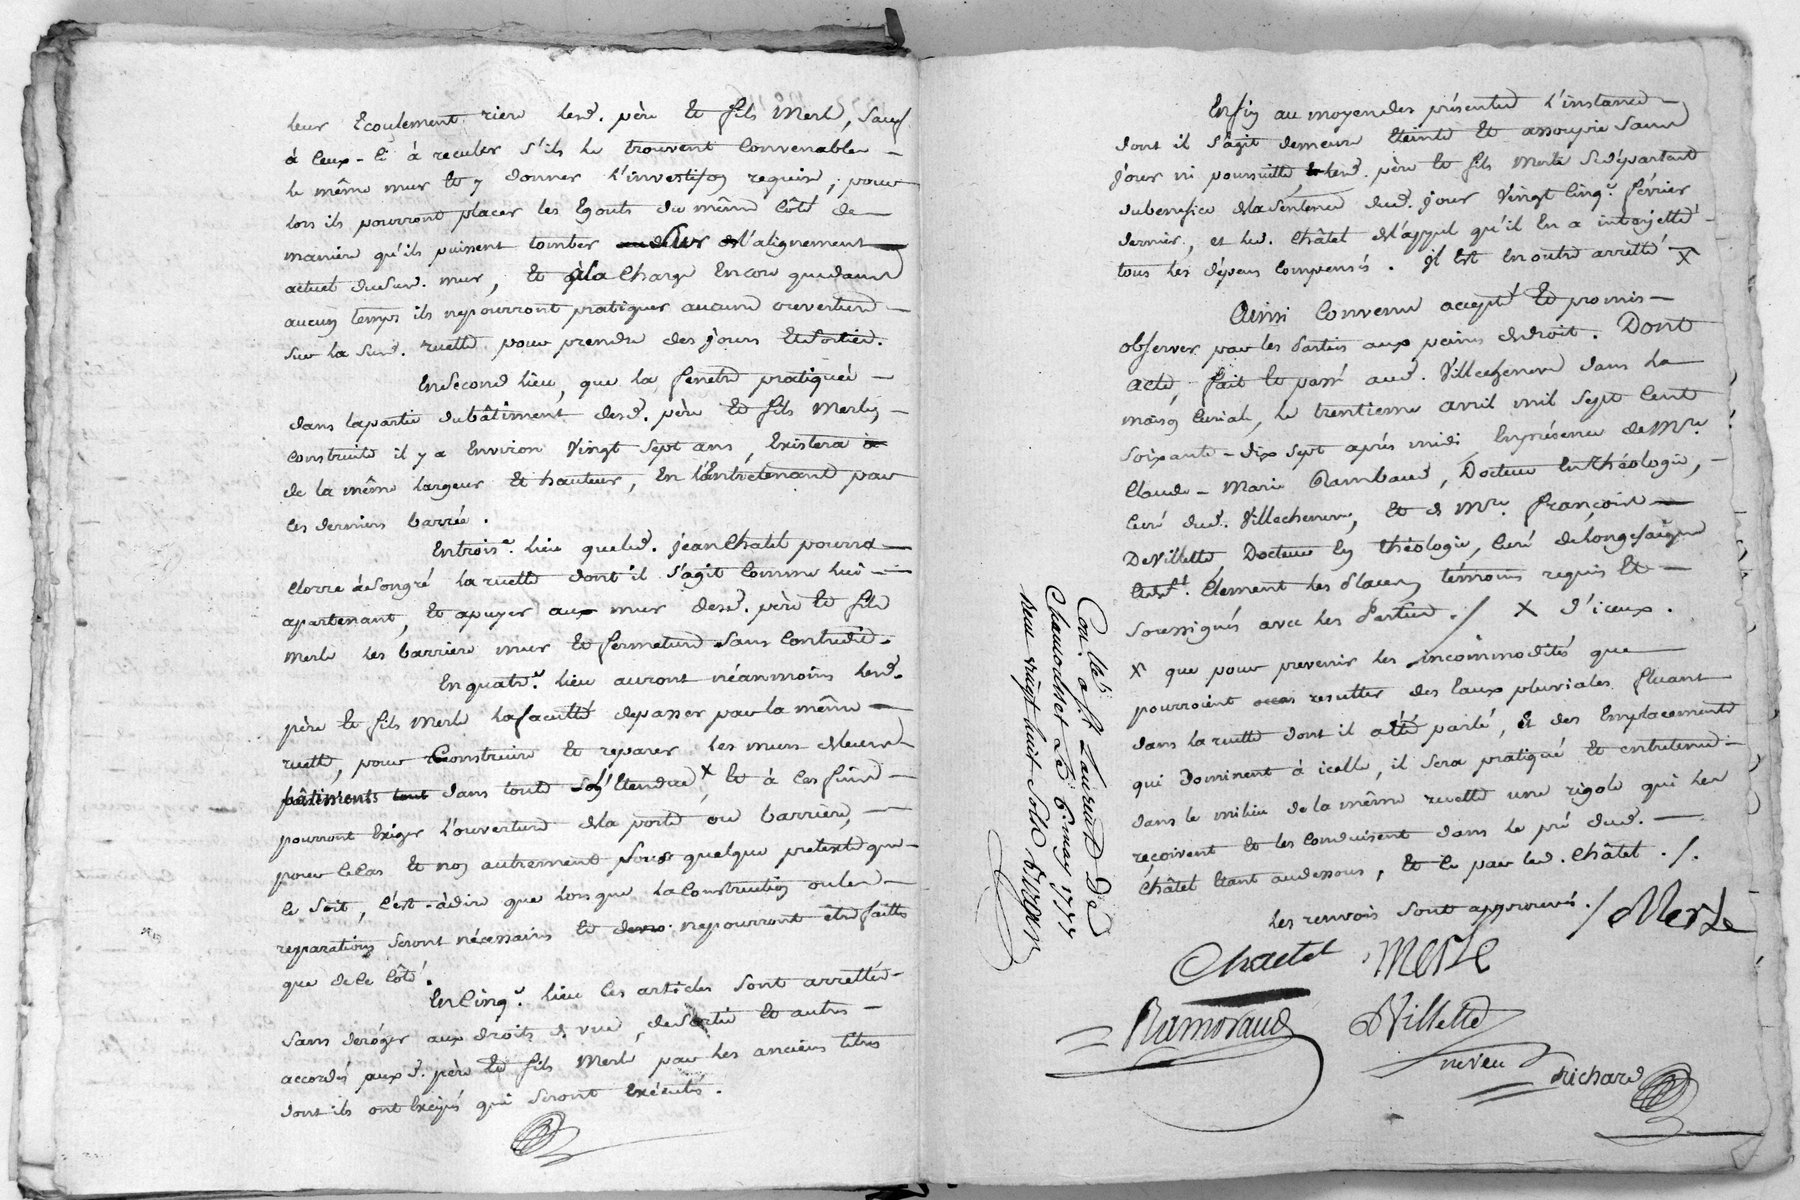 leur Ecoulement riere lesd. père Et fils Merle, Sauf
à Ceux-Ci à reculer s'ils le trouvent Convenable
le même mur Et y donner l'investison requise; pour
lors ils pourront placer les Egouts du même Côté de
maniere qu'ils puissent tomber Sur l'alignement
actuel dudsud. mur, Et à la Charge Encore que dans
aucun temps ils ne pourront pratiquer aucune ouverture
sur la susd. ruelle pour prendre des jours Et Sorties.
En Second Lieu, que la fenetre pratiquée
dans la partie du bâtiment desd. père Et fils Merle,
construite il y a Environ Vingt Sept ans, Existera
de la même largeur Et hauteur, En l'Entretenant par
les derniers barrée.
En trois.e Lieu que led. jean Chatel pourra
Clorre à Son gré la ruelle dont il s'agit Comme lui
apartenant, Et apuyer aux mur desd. père Et fils
Merle les barriere mur Et fermeture Sans Contredit.
En quatr.e Lieu auront néanmoins lesd.
père Et fils Merle la faculté de passer par la même
ruelle, pour Construire Et reparer les murs de leurs
bâtiments tout dans toute Son Etendue, x Et à Ces fins
pourront Exiger l'ouverture de la porte ou barriere,
pour Ce Cas Et non autrement Sous quelque pretexte que
Ce Soit, C'est-à-dire que lorsque la Construction ou les
reparations Seront nécessaires Et ne pourront être faittes
que de Ce Côté.
En Cinq.e Lieu Ces articles Sont arrettés
Sans deroger aux droits de vue, de Sortie Et autres
accordés auxd. père Et fils Merle par les anciens titres
dont ils ont Excipés qui Seront Exécutés.
Enfin au moyen des présentes l'instance
dont il S'agit demeure Eteinte Et assoupie Sans
jour ni poursuitte, lesd. père Et fils Merle Se départant
du benefice de la Sentence dud. jour Vingt Cinq.e février
dernier, et led. Châtel de l'appel qu'il En a interjetté
tous les dépens Compensés. Il Est En outre arretté X
Ainsi Convenu accepté Et promis
observer par les Parties aux peines de droit. Dont
acte, fait Et passé aud. Villechenene dans la
maison Curiale, le trentieme avril mil Sept Cent
Soixante-dix Sept après midi En présence de M.re
Claude-Marie Rambaud, Docteur En théologie,
Curé dud. Villechenene, Et de M.re françois
De Villette Docteur En théologie, Curé de Longesaigne
Et St. Clement les Places témoins requis Et
Soussignés avec les Parties./ X d'iceux.
X que pour prevenir les incommodités que
pourroient resulter des Eaux pluviales fluant
dans la ruelle dont il a été parlé, Et des Emplacements
qui Dominent à icelle, il Sera pratiqué Et entretenu
dans le milieu de la même ruelle une rigole qui les
reçoivent Et les Conduisent dans le pré dud.
Châtel Etant audessous, Et Ce par led. Châtel ./.
les renvois Sont approuvés./ Merle
Chaetel Merle
Ramboaud DVillette
neveu Richard
Con. tab. a St Laurent De
Chamousset Le 6. may 1777
Reçu vingt huit Sols